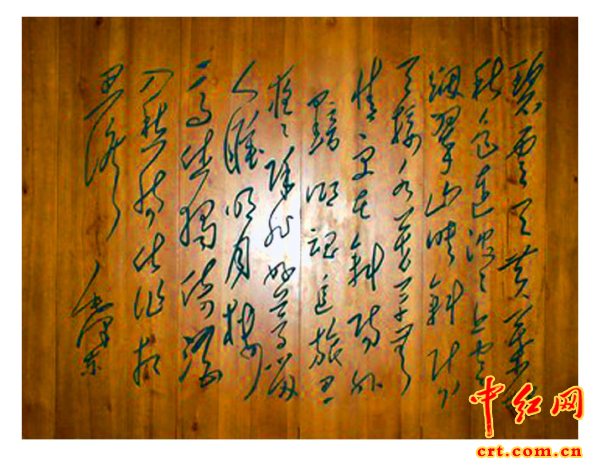 碧云天黄葉
秋色連波々上寒
烟翠山映斜陽
天接水芳草无
情更在斜陽外
黯鄉魂追旅思
夜々除非好夢留
人睡明月楼
高休獨倚酒
入愁腸化作相
思淚 毛澤东
中红网
crt.com.cn